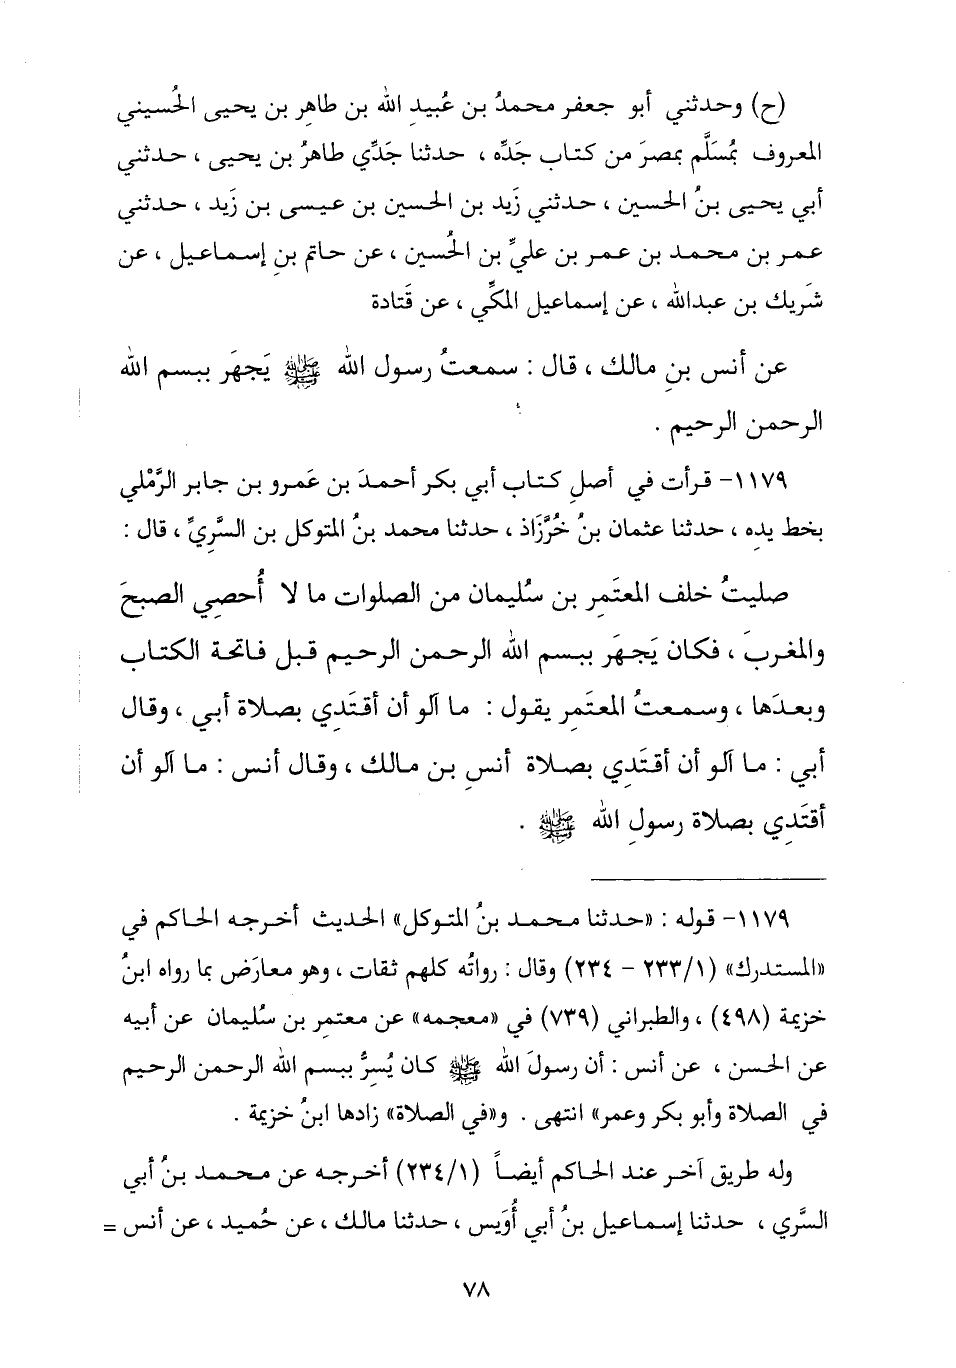 (ح) وحدثني أبو جعفر محمدُ بن عُبيدِ الله بن طاهِر بن يحيى الحُسيني
المعروف بمُسَلَّم بمصرَ من كتاب جَدِّه ، حدثنا جَدِّي طاهرُ بن يحيى ، حدثني
أبي يحيى بنُ الحسين ، حدثني زَيد بن الحسين بن عيسى بن زَيد ، حدثني
عمر بن محمد بن عمر بن عليِّ بن الحُسين ، عن حاتم بنِ إسماعيل ، عن
شَريك بن عبدالله ، عن إسماعيل المكِّي ، عن قَتادة
عن أنس بنِ مالك ، قال : سمعتُ رسول الله ﷺ يَجهَر ببسم الله
الرحمن الرحيم .
١١٧٩- قرأت في أصلِ كتاب أبي بكر أحمدَ بن عَمرو بن جابر الرَّمْلي
بخط يدِه ، حدثنا عثمان بنُ خُرَّزاذ ، حدثنا محمد بنُ المتوكل بن السَّرِيِّ ، قال :
صليتُ خلف المعتَمِر بن سُليمان من الصلوات ما لا أُحصِي الصبحَ
والمغربَ ، فكان يَجهَر ببسم الله الرحمن الرحيم قبل فاتحة الكتاب
وبعدَها ، وسمعتُ المعتَمِر يقول : ما آلو أن أقتَدِي بصلاة أبي ، وقال
أبي : ما آلو أن أقتَدِي بصلاة أنسِ بن مالك ، وقال أنس : ما آلو أن
أقتَدِي بصلاة رسولِ الله ﷺ .
١١٧٩- قوله : «حدثنا محمد بنُ المتوكل» الحديث أخرجه الحاكم في
«المستدرك» (١/٢٣٣ - ٢٣٤) وقال : رواتُه كلهم ثقات ، وهو معارَض بما رواه ابنُ
خزيمة (٤٩٨) ، والطبراني (٧٣٩) في «معجمه» عن معتمِر بن سُليمان عن أبيه
عن الحسن ، عن أنس : أن رسولَ الله ﷺ كان يُسِرُّ ببسم الله الرحمن الرحيم
في الصلاة وأبو بكر وعمر» انتهى . و«في الصلاة» زادها ابنُ خزيمة .
وله طريق آخر عند الحاكم أيضاً (١/٢٣٤) أخرجه عن محمد بنُ أبي
السَّري ، حدثنا إسماعيل بنُ أبي أُوَيس ، حدثنا مالك ، عن حُميد ، عن أنس =
٧٨